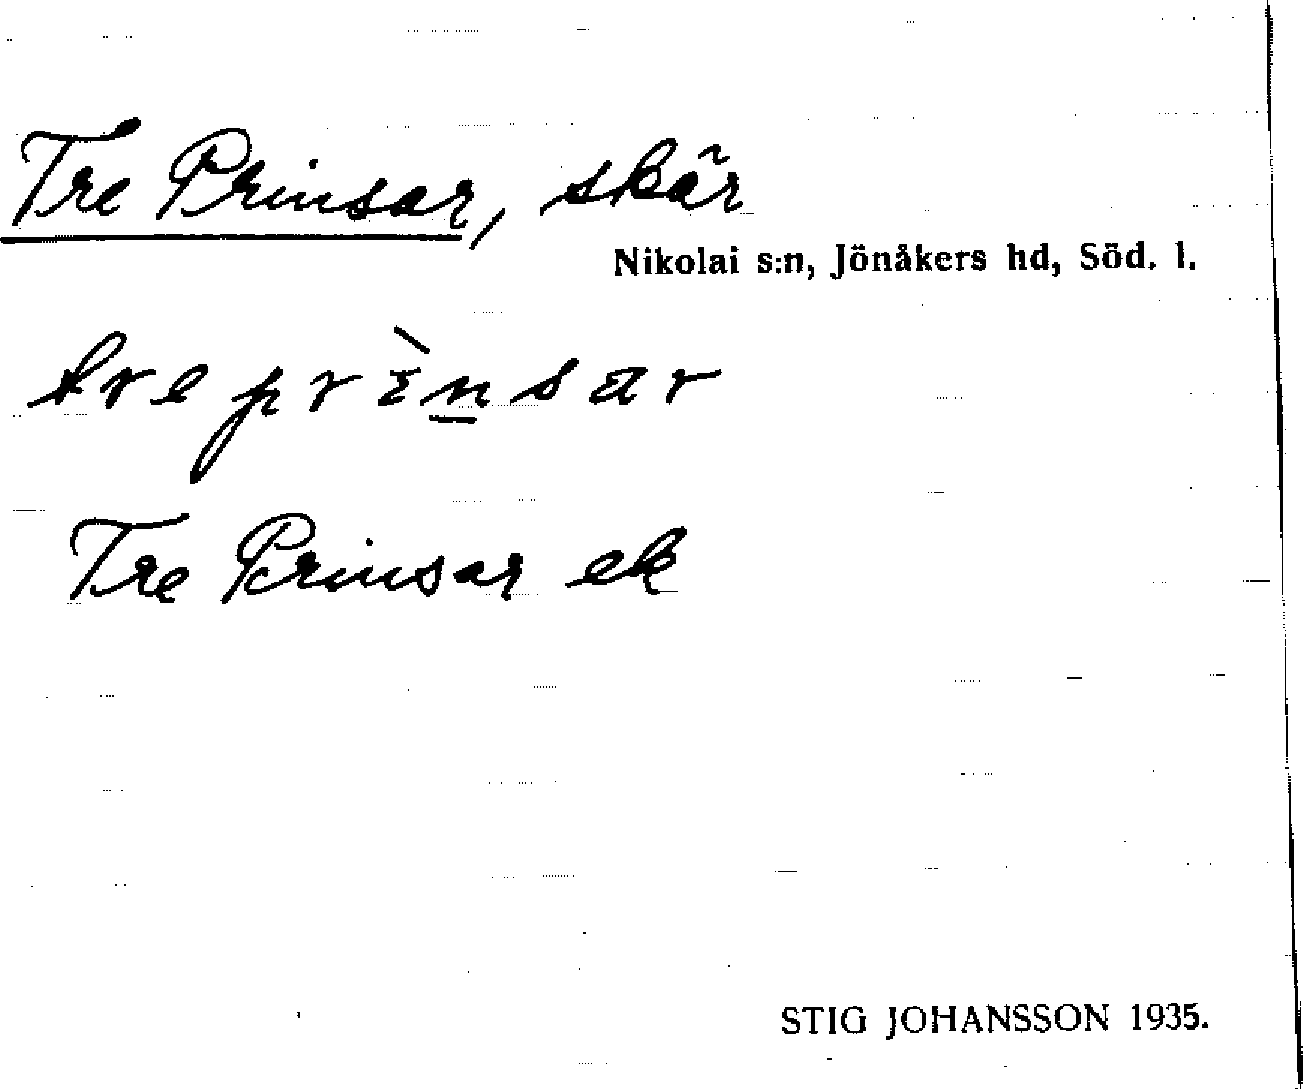 Tre Prinsar, skär
Nikolai s:n, Jönåkers hd, Söd. l.
tre prìnsar
Tre Prinsar ek
STIG JOHANSSON 1935.